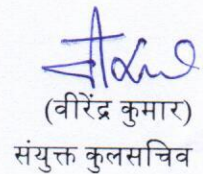 (वीरेंद्र कुमार)
संयुक्त कुलसचिव